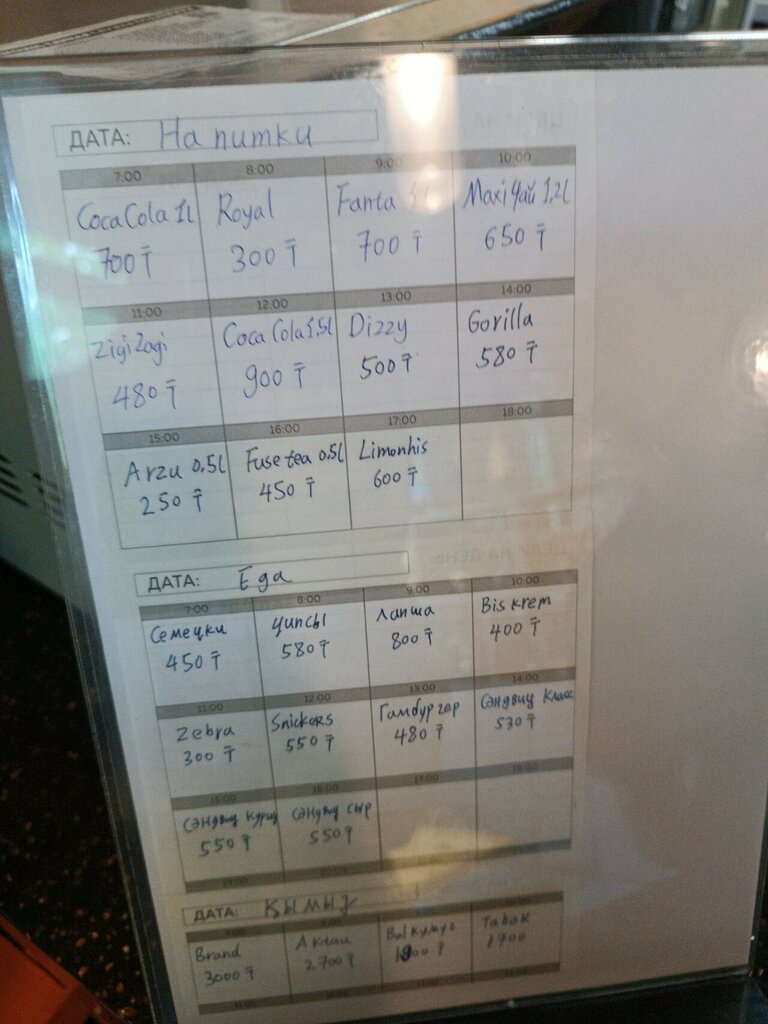 ДАТА: Напитки
7:00 8:00 9:00 10:00
CocaCola 1L Royal Fanta 1L Maxi Чай 1,2L
700 ₸ 300 ₸ 700 ₸ 650 ₸
11:00 12:00 13:00 14:00
ZigiZagi Coca Cola 1,5L Dizzy Gorilla
480 ₸ 900 ₸ 500 ₸ 580 ₸
15:00 16:00 17:00 18:00
Arzu 0,5L Fuse tea 0,5L Limonhis
250 ₸ 450 ₸ 600 ₸
ДАТА: Еда
7:00 8:00 9:00 10:00
Семечки Чипсы Лапша Biskrem
450 ₸ 580 ₸ 800 ₸ 400 ₸
11:00 12:00 13:00 14:00
Zebra Snickers Гамбургер Сэндвич Класс
300 ₸ 550 ₸ 480 ₸ 530 ₸
15:00 16:00 17:00 18:00
Сэндвич Куриц Сэндвич сыр
550 ₸ 550 ₸
ДАТА: Қымыз
Brand
3000 ₸ 2700 ₸ 1900 ₸ 1700